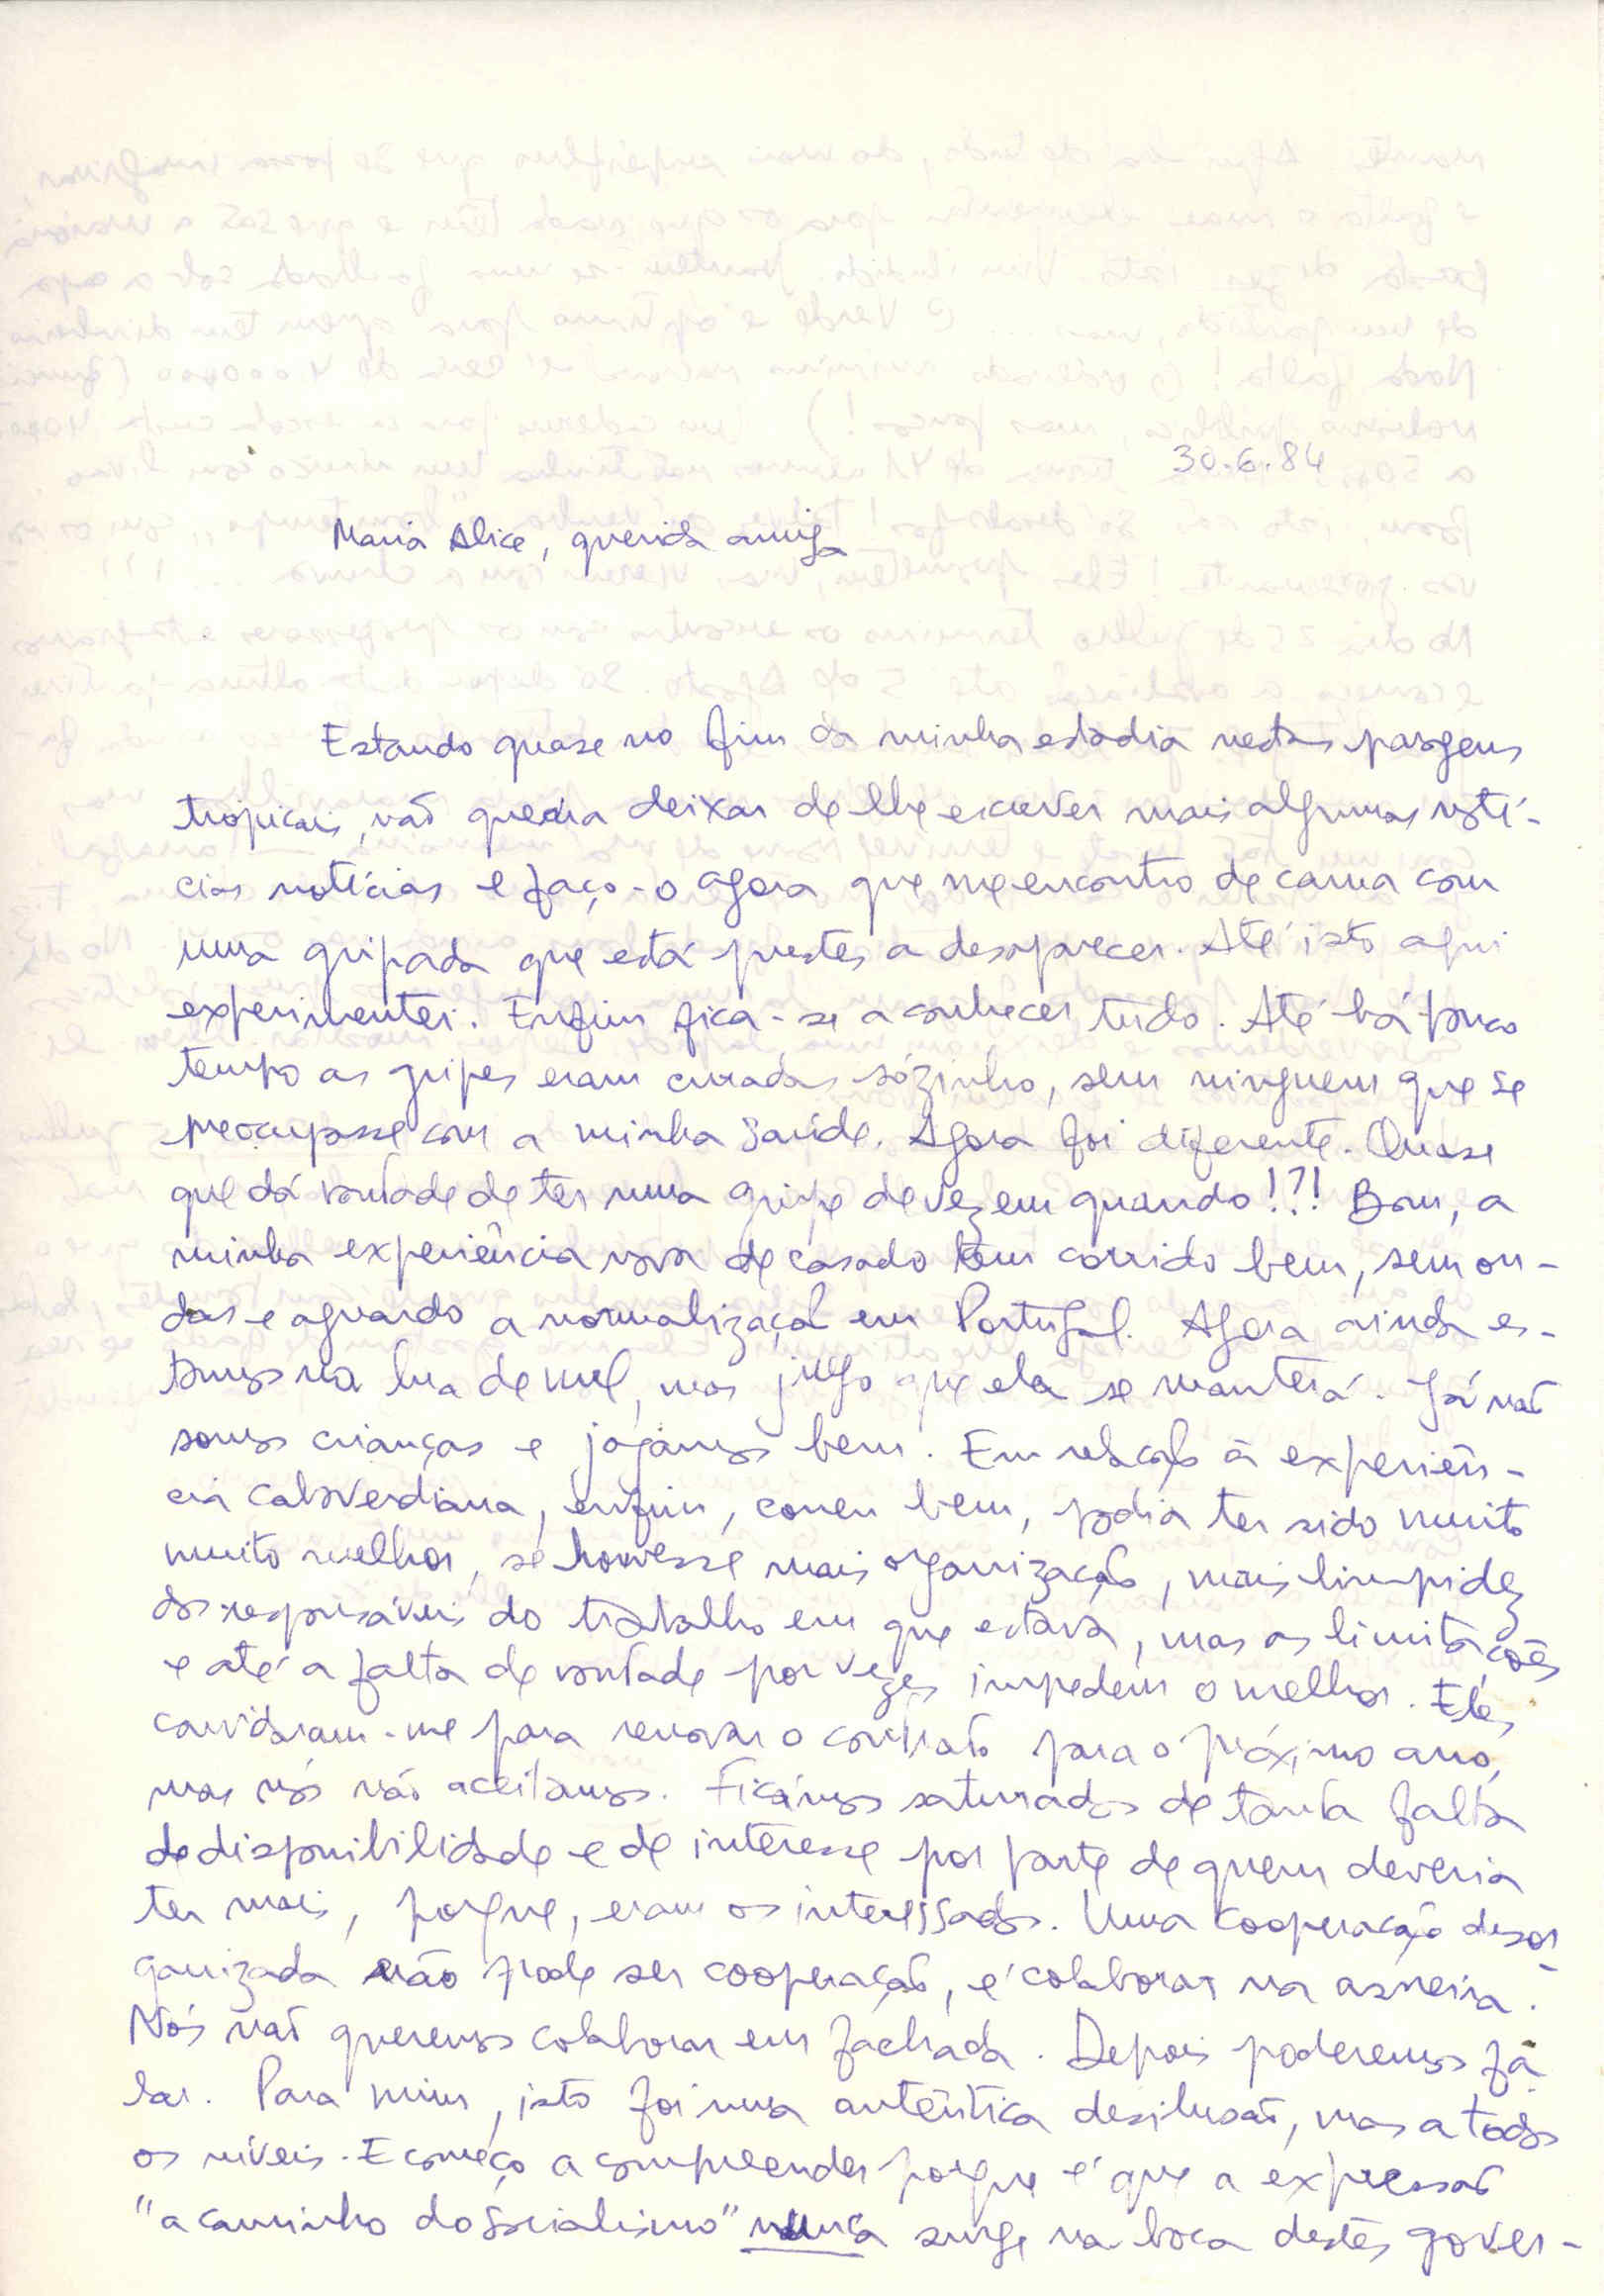 30.6.84
Maria Alice, querida amiga
Estando quase no fim da minha estadia nestas paragens
tropicais, não queria deixar de lhe escrever mais algumas notí-
cias notícias e faço-o agora que me encontro de cama com
uma gripada que está prestes a desaparecer. Até isto aqui
experimentei. Enfim fica-se a conhecer tudo. Até há pouco
tempo as gripes eram curadas sózinho, sem ninguem que se
preocupasse com a minha saúde. Agora foi diferente. Quase
que dá vontade de ter uma gripe de vez em quando!?! Bom, a
minha experiência nova de casado tem corrido bem, sem on-
das e aguardo a normalização em Portugal. Agora ainda es-
tamos na lua de mel, mas julgo que ela se manterá. Já não
somos crianças e jogamos bem. Em relação à experiên-
cia caboverdiana, enfim, correu bem, podia ter sido muito
muito melhor, se houvesse mais organização, mais limpidez
dos responsáveis do trabalho em que estava, mas as limitações
e até a falta de vontade por vezes impedem o melhor. Eles
convidaram-me para renovar o contrato para o próximo ano,
mas nós não aceitamos. Ficámos saturados de tanta falta
de disponibilidade e de interesse por parte de quem deveria
ter mais, porque, eram os interessados. Uma cooperação desor-
ganizada não pode ser cooperação, é colaborar na asneira.
Nós não queremos colaborar em fachada. Depois poderemos fa-
lar. Para mim, isto foi uma autêntica desilusão, mas a todos
os níveis. E começo a compreender porque é que a expressão
"a caminho do socialismo" nunca surge na boca destes gover-